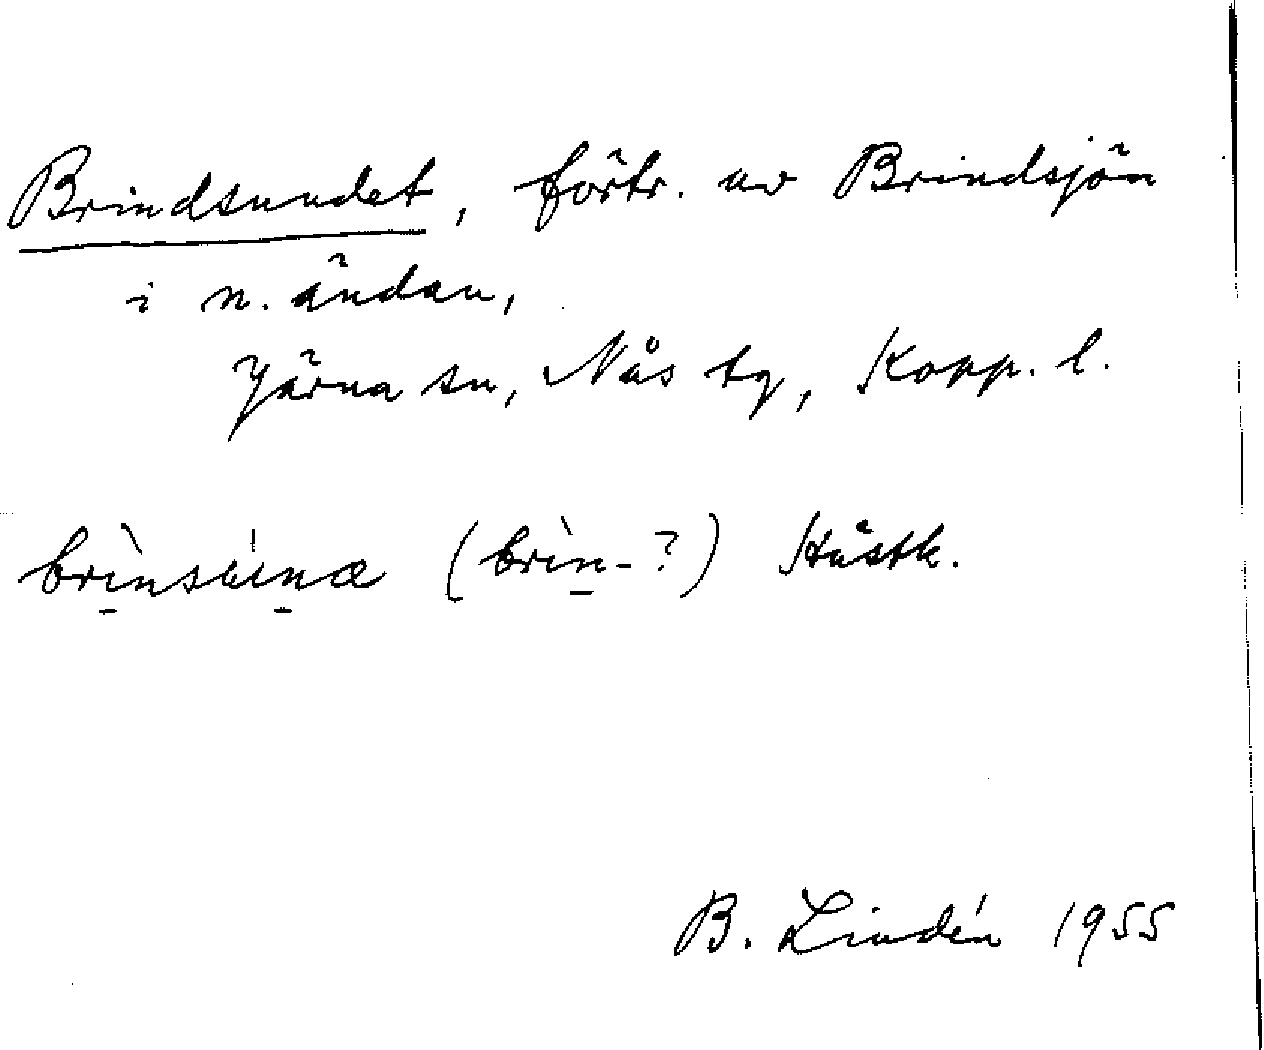 Brindsundet, förtr. av Brindsjön
i n. ändan,
Järna sn, Nås tg, Kopp. l.
(brìn-?)
B. Lindén 1955